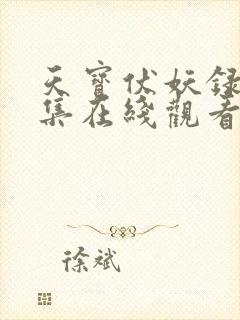 天寶伏妖録
集在綫觀看
徐斌